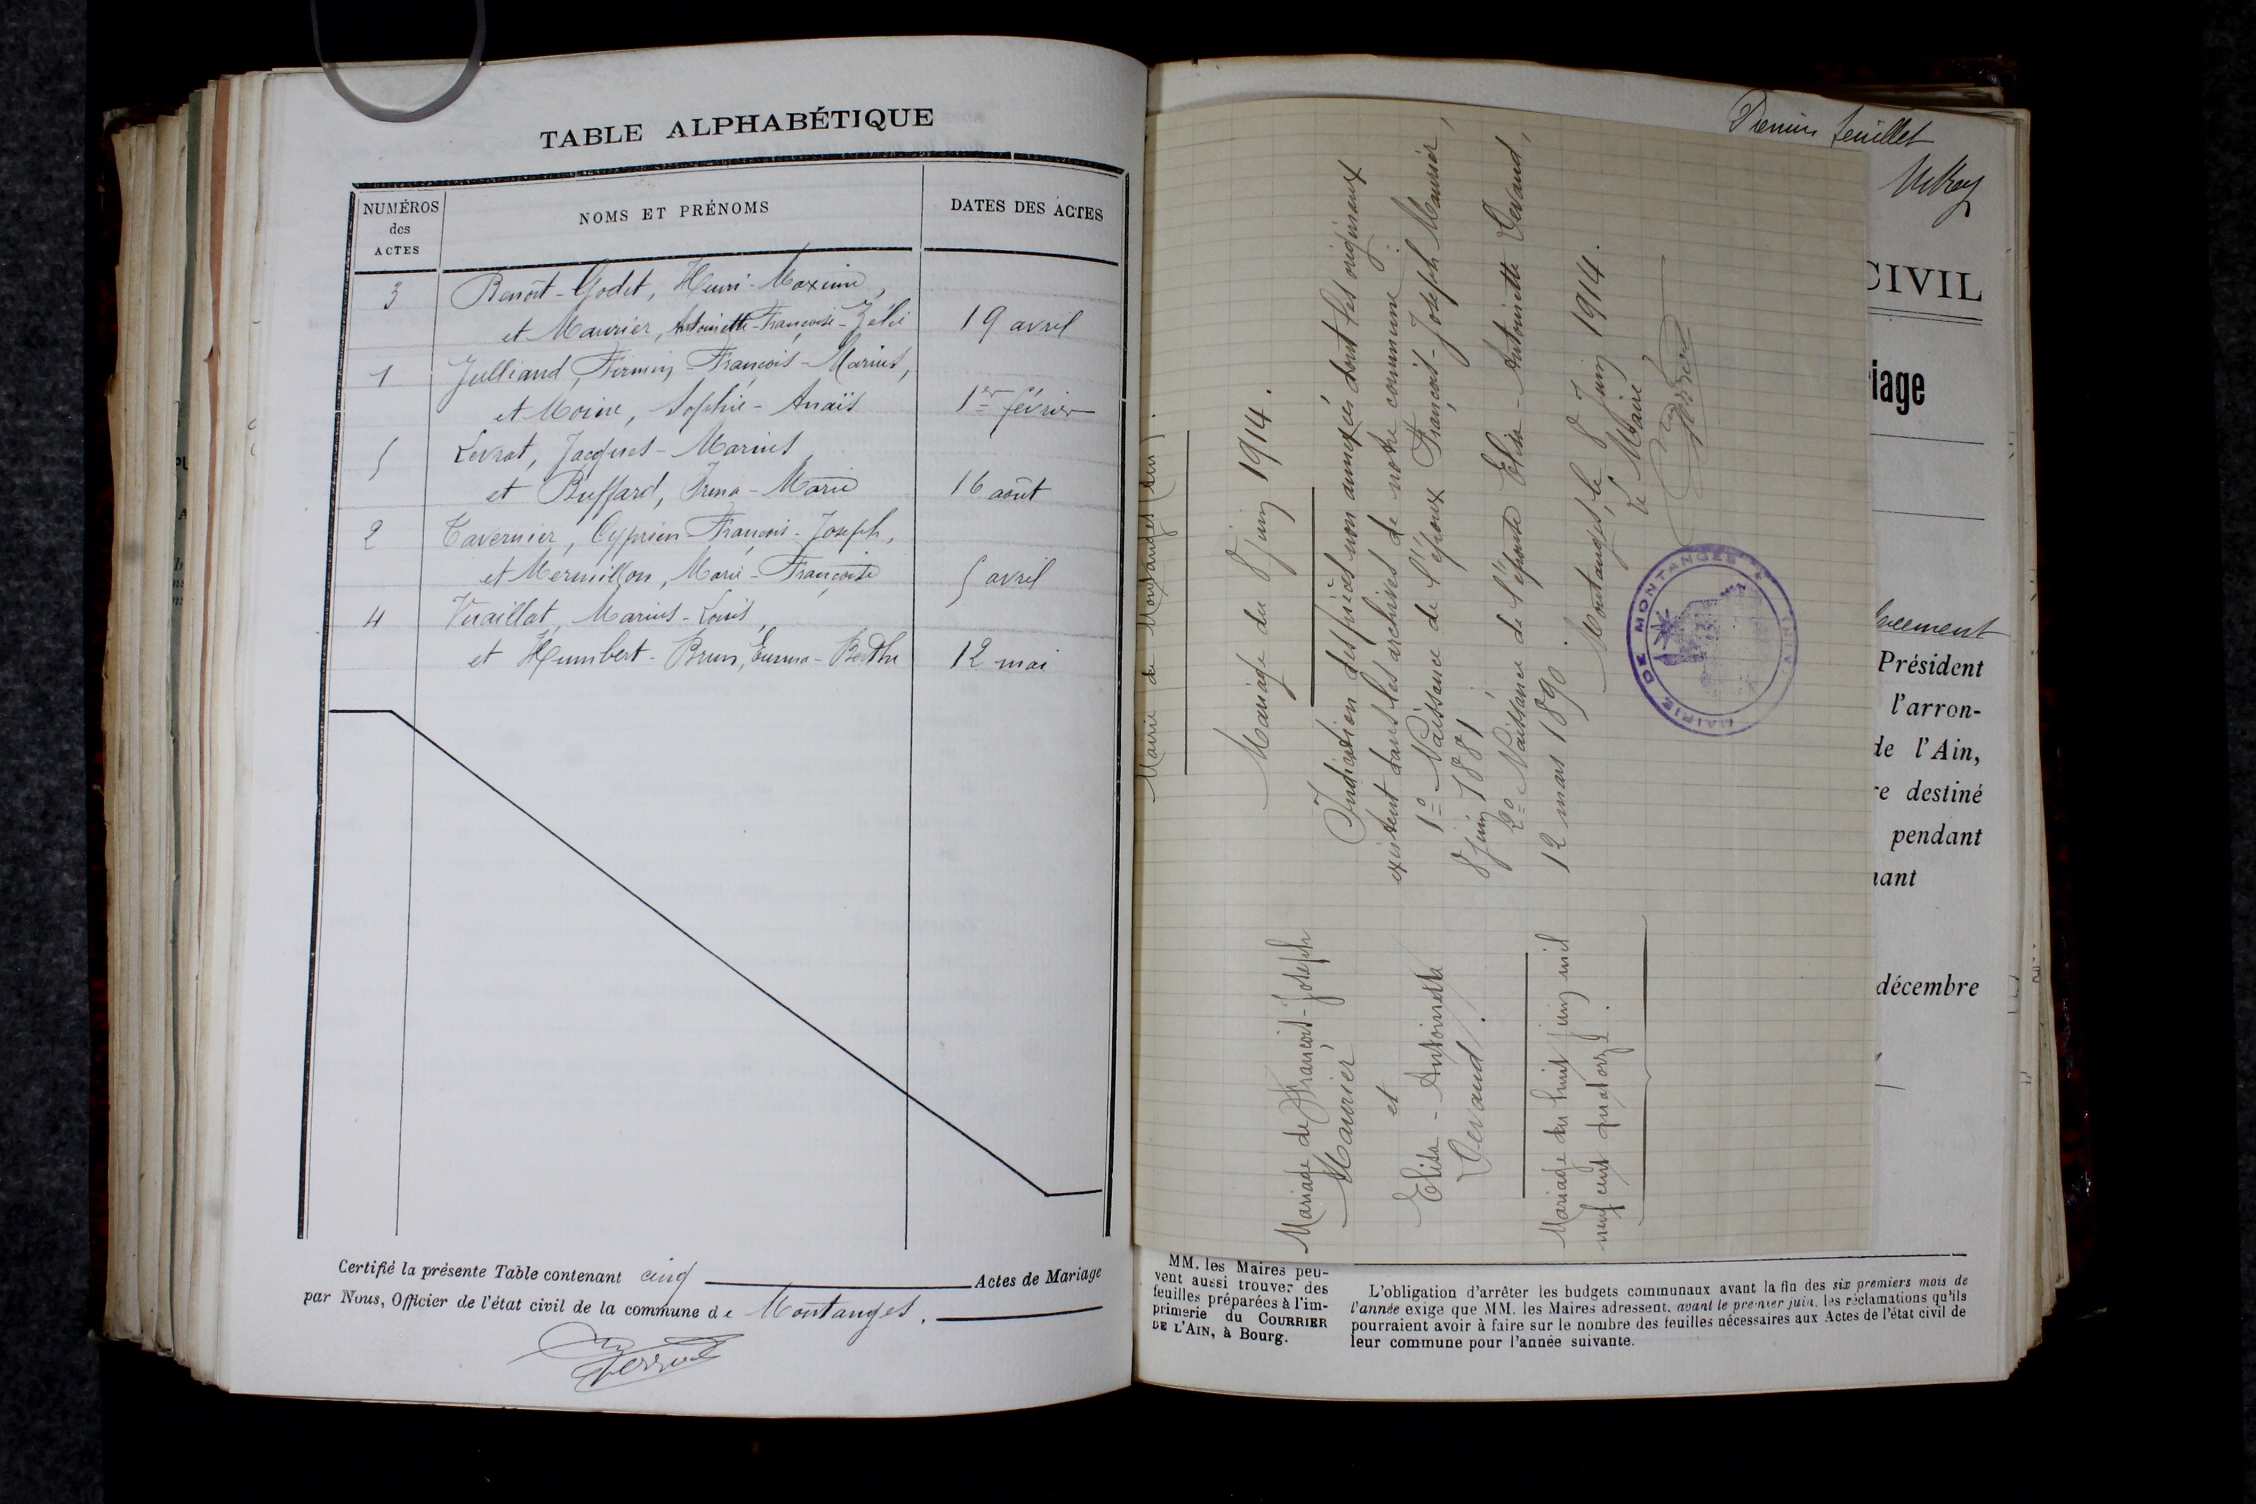 TABLE ALPHABÉTIQUE
NUMÉROS
des
ACTES
NOMS ET PRÉNOMS
DATES DES ACTES
3 Benoît-Godet, Henri-Maxime,
et Maurier, Antoinette-Françoise-Zélie 19 avril
1 Julliand, Firmin-François-Marius,
et Moine, Sophie-Anaïs 1er février
5 Levrat, Jacques-Marius
et Buffard, Irma-Marie 16 août
2 Tavernier, Cyprien-François-Joseph,
et Mermillon, Marie-Françoise 5 avril
4 Vuaillat, Marius-Louis,
et Humbert-Brun, Emma-Berthe 12 mai
Certifié la présente Table contenant cinq Actes de Mariage
par Nous, Officier de l'état civil de la commune de Montanges.
Mairie de Montanges (Ain).
Mariage du 8 Juin 1914.
Indication des pièces non annexées dont les originaux
existent dans les archives de notre commune :
1º Naissance de l'époux François-Joseph Maurier,
8 Juin 1881 ;
2º Naissance de l'épouse Elisa-Antoinette Cevaud,
12 mars 1890.
Montanges, le 8 Juin 1914.
Le Maire
MAIRIE DE MONTANGES (AIN)
Mariage de François-Joseph
Maurier
et
Elisa-Antoinette
Cevaud.
Mariage du huit juin mil
neuf cent quatorze.
Premier feuillet
CIVIL
iage
Président
l'arron-
de l'Ain,
re destiné
pendant
nant
décembre
MM. les Maires peu-
vent aussi trouver des
feuilles préparées à l'im-
primerie du COURRIER
DE L'AIN, à Bourg.
L'obligation d'arrêter les budgets communaux avant la fin des six premiers mois de
l'année exige que MM. les Maires adressent, avant le premier juin, les réclamations qu'ils
pourraient avoir à faire sur le nombre des feuilles nécessaires aux Actes de l'état civil de
leur commune pour l'année suivante.